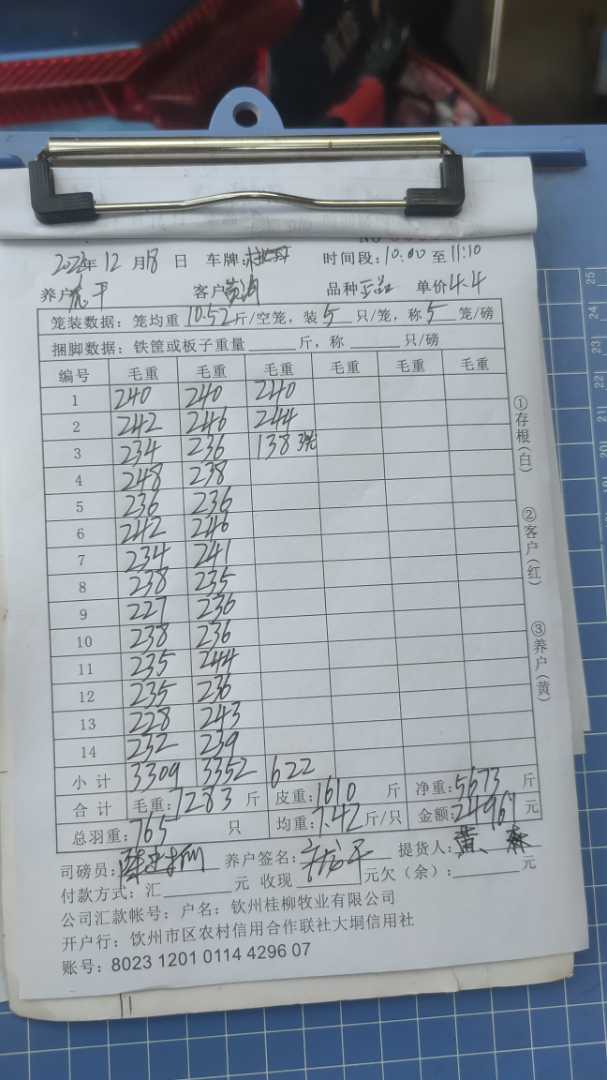 2023年12月18日 车牌: 时间段:10:00至11:10
养户: 客户: 品种 单价4.4
笼装数据:笼均重10.52斤/空笼,装5只/笼,称5笼/磅
捆脚数据:铁筐或板子重量____斤,称____只/磅
编号 毛重 毛重 毛重 毛重 毛重 毛重
1 240 240 240
2 242 246 244
3 234 236 138
4 248 238
5 236 236
6 242 246
7 234 241
8 238 235
9 227 236
10 238 236
11 235 244
12 235 236
13 228 243
14 232 239
小计 3309 3352 622
合计 毛重:7283斤 皮重:1610斤 净重:5673斤
总羽重:765只 均重:7.42斤/只 金额:24961元
司磅员: 养户签名: 提货人:
付款方式:汇____元 收现____元欠(余):____元
公司汇款帐号:户名:钦州桂柳牧业有限公司
开户行:钦州市区农村信用合作联社大垌信用社
账号:8023 1201 0114 4296 07
①存根(白)
②客户(红)
③养户(黄)
25
24